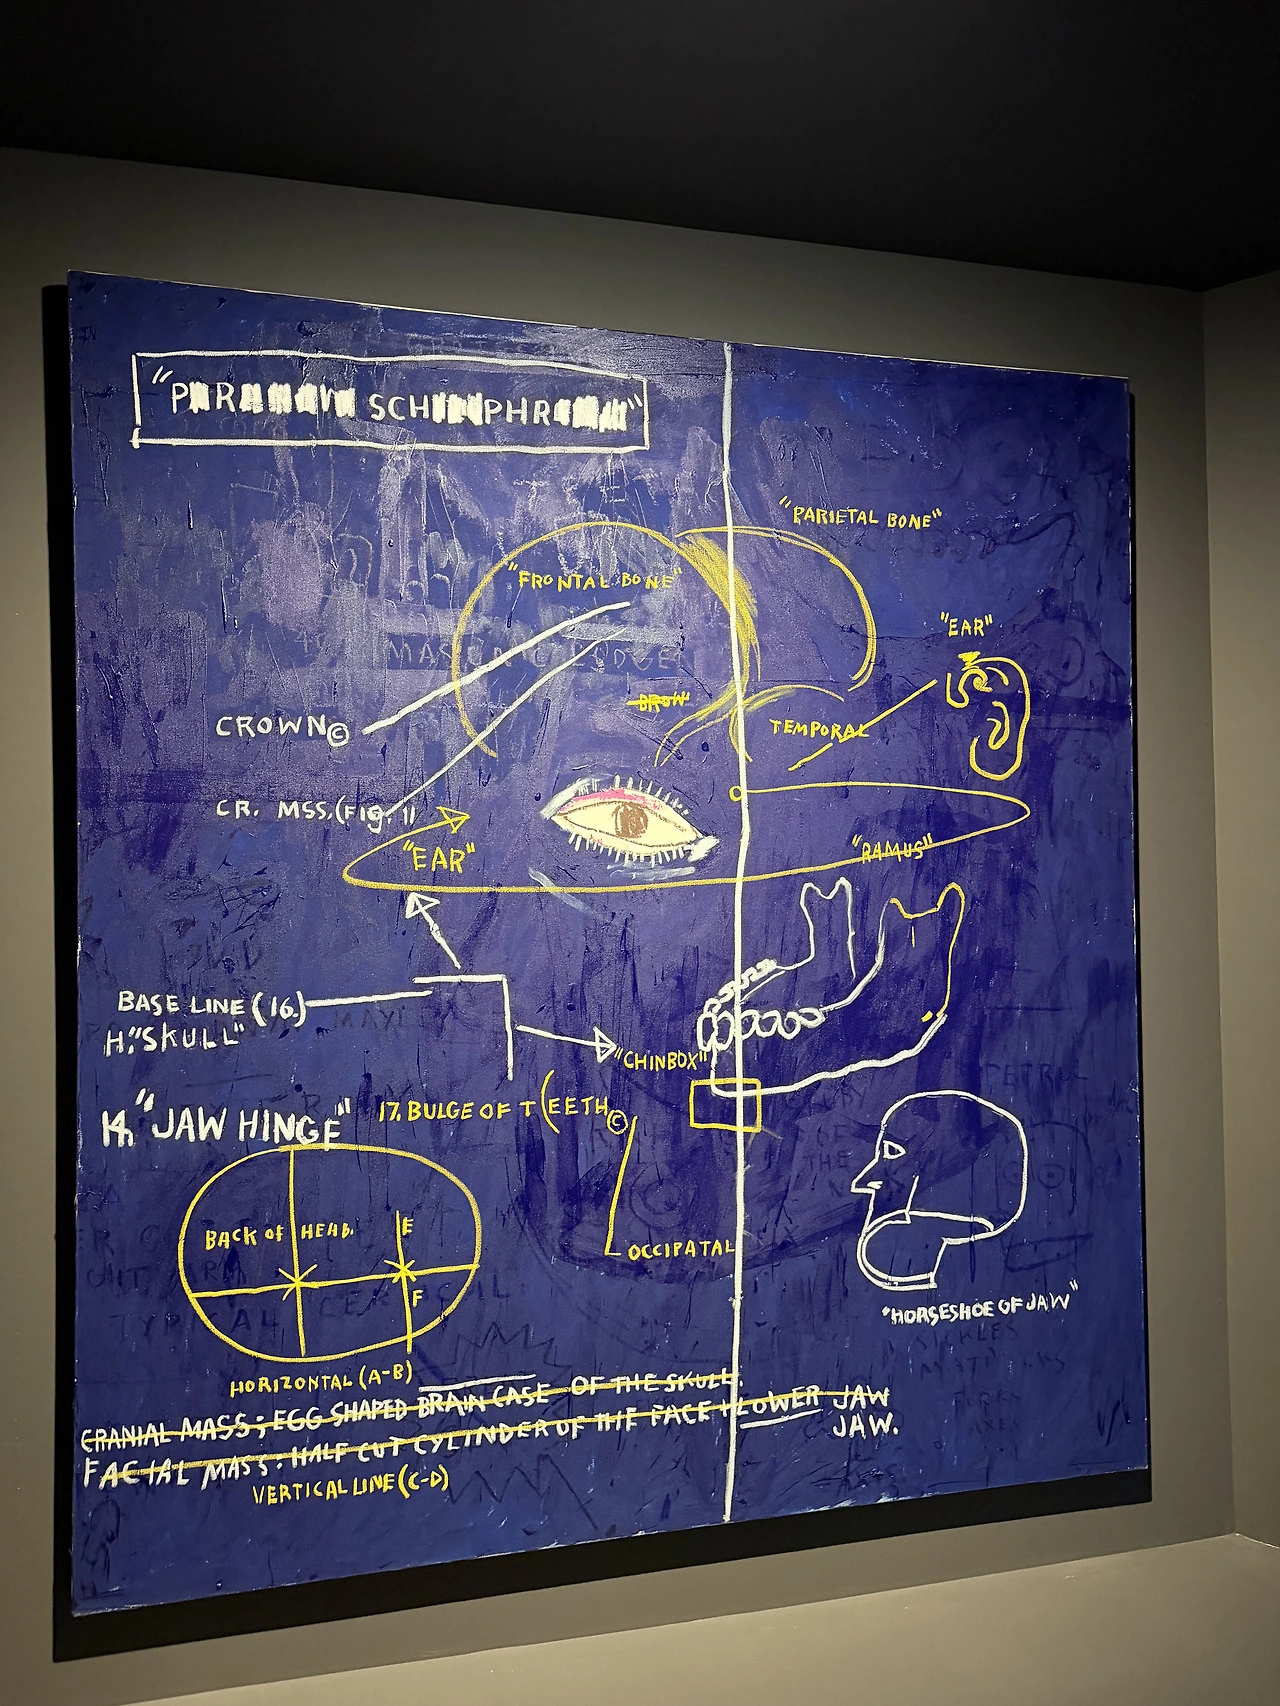 "PARANOIA SCHIZOPHRENIA"
"PARIETAL BONE"
"FRONTAL BONE"
"EAR"
BROW
CROWN©
TEMPORAL
CR. MSS. (FIG. 1)
"EAR"
"RAMUS"
BASE LINE (16.)
H."SKULL"
"CHINBOX"
14. "JAW HINGE"
17. BULGE OF T(EETH©
BACK OF HEAD.
E
F
OCCIPATAL
"HORSESHOE OF JAW"
HORIZONTAL (A-B)
CRANIAL MASS; EGG SHAPED BRAIN CASE OF THE SKULL.
FACIAL MASS: HALF CUT CYLINDER OF THE FACE + LOWER JAW
JAW.
VERTICAL LINE (C-D)